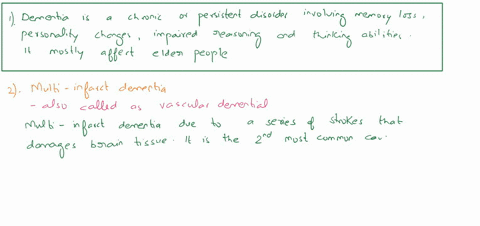 1) Dementia is a chronic or persistent disorder involving memory loss,
personality changes, impaired reasoning and thinking abilities.
It mostly affect elder people
2). Multi-infarct dementia
- also called as vascular demential
Multi-infarct dementia due to a series of strokes that
damages brain tissue. It is the 2nd most common cau